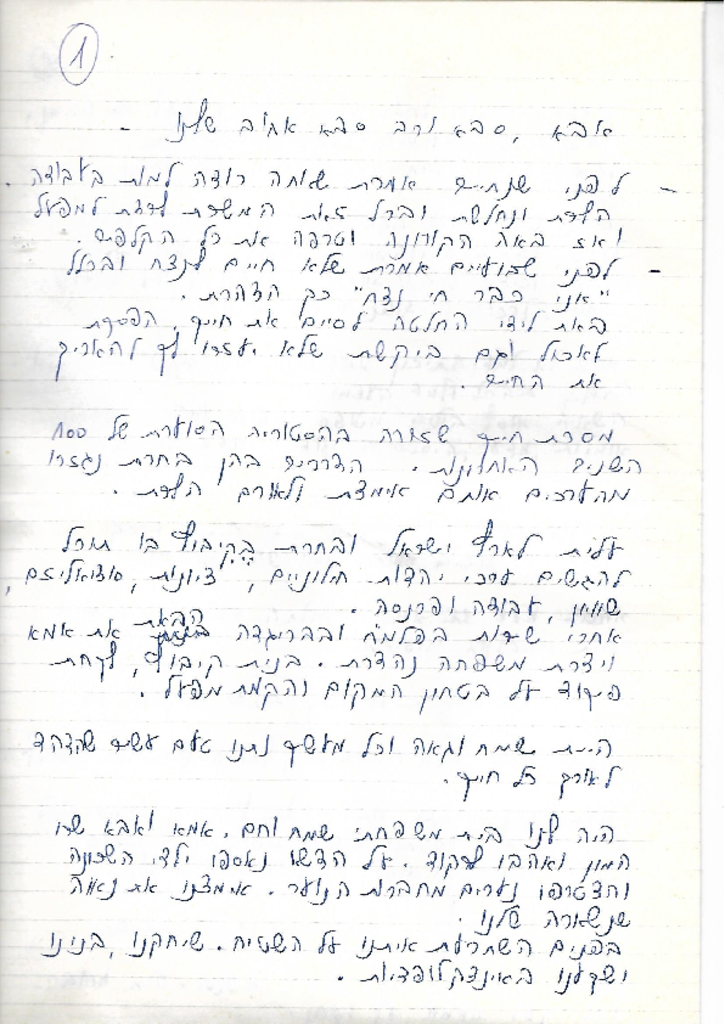 1
אבא, סבא ורב סבא אהוב שלנו -
- לפני שנתיים אמרת שאתה רוצה למות בעבודה.
הזדקנת ונחלשת ובכל זאת המשכת לרדת למפעל
ואז באה הקורונה וטרפה את כל הקלפים.
- לפני שבועיים אמרת שלא חיים לנצח ובכלל
"אני כבר חי נצח" כך הצהרת.
באת לידי החלטה לסיים את חייך, הפסקת
לאכול וגם ביקשת שלא יעזרו לך להאריך
את החיים.
מסכת חייך שזורה בהסטוריה הסוערת של 100
השנים האחרונות. הדרכים בהן בחרת נגזרו
מהערכים אותם אימצת ולאורם הלכת.
עלית לארץ ישראל ובחרת בקיבוץ בו תוכל
להגשים ערכי יהדות חילוניים, ציונות, סוציאליזם,
שוויון, עבודה ופרנסה.
אחרי שירות בפלמ"ח ובבריגדה הבאת את אמא
ויצרת משפחה נהדרת. בנית קיבוץ, לקחת
פיקוד על בטחון המקום והקמת מפעל.
היית שמח וגאה וכל מעשיך נתנו טעם עשיר שהדהד
לאורך כל חייך.
היה לנו בית משפחתי שמח וחם. אמא ואבא שרו
המון ואהבו לרקוד. על הדשא נאספו ילדי השכונה
והצטרפו נערים מחברות הנוער. אימצנו את נאוה
שנשארה שלנו.
בפנים השתרעת איתנו על השטיח. שיחקנו, בנינו
ושקענו באינצקלופדיות.